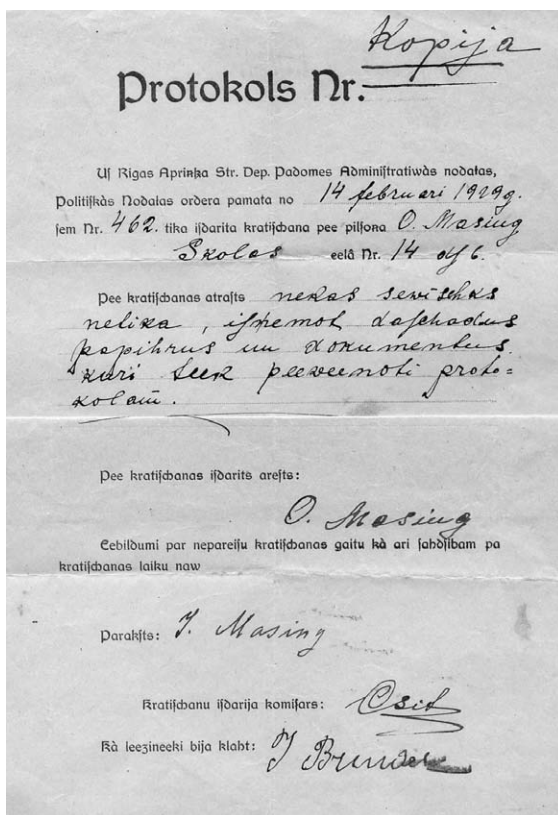 Kopija
Protokols Nr.
Uſ Rigas Aprinķa Str. Dep. Padomes Adminiſtratiwàs nodaļas,
Politiſkàs Nodaļas ordera pamata no 14 februari 1929g.
ſem Nr. 462. tika iſdarita kratiſchana pee pilſoņa O. Masing
Skolas eelâ Nr. 14 dſ 6.
Pee kratiſchanas atraſts nekas sewischks
netika, iſņemot daſchadus
papihrus un dokumentus
kuri teek peeweenoti proto=
kolam.
Pee kratiſchanas iſdarits areſts:
O. Masing
Eebildumi par nepareiſu kratiſchanas gaitu kà ari ſahdſibam pa
kratiſchanas laiku naw
Parakſts: J. Masing
Kratiſchanu iſdarija komiſars:
Kà leezineeki bija klaht: J